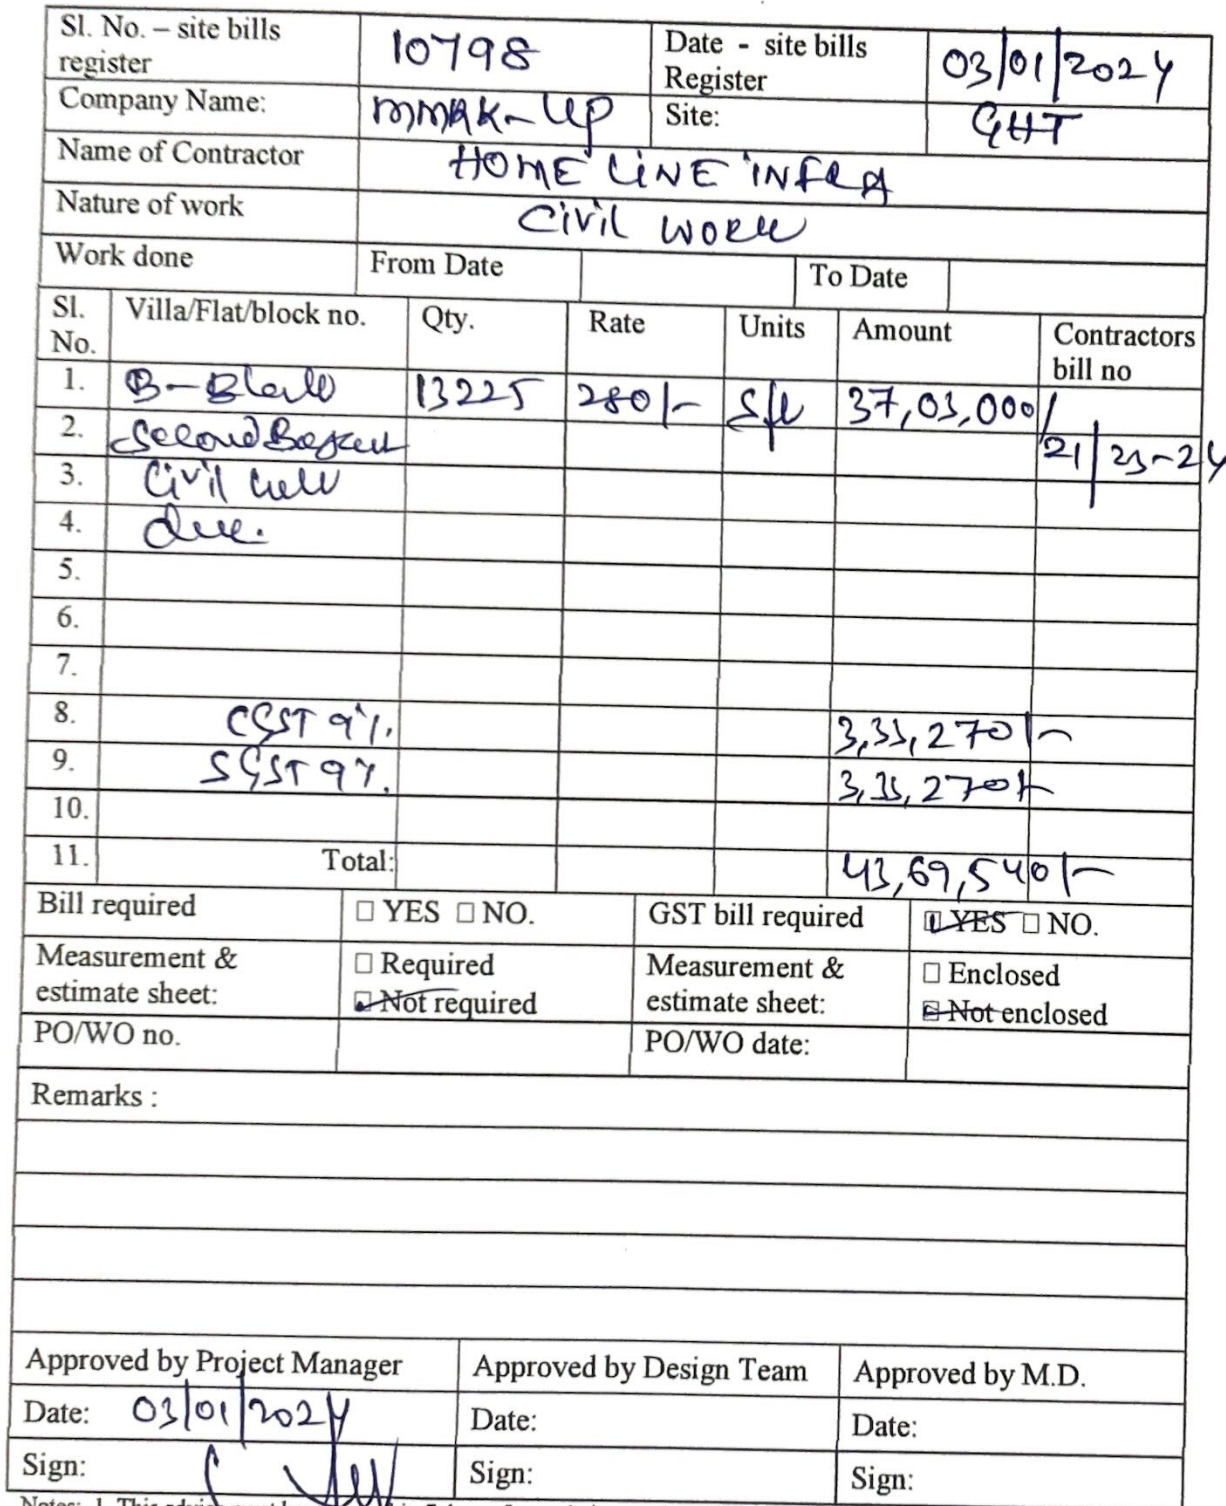 Sl. No. – site bills register 10798 Date - site bills Register 03/01/2024
Company Name: MMRK-UP Site: GHT
Name of Contractor HOME LINE INFRA
Nature of work Civil work
Work done From Date To Date
Sl. No. Villa/Flat/block no. Qty. Rate Units Amount Contractors bill no
1. B-Block 13225 280/- Sft 37,03,000/
2. Second 21/23-24
3. Civil
4. due.
5.
6.
7.
8. CGST 9%. 3,33,270/-
9. SGST 9%. 3,33,270/-
10.
11. Total: 43,69,540/-
Bill required □ YES □ NO. GST bill required □ YES □ NO.
Measurement & estimate sheet: □ Required □ Not required Measurement & estimate sheet: □ Enclosed □ Not enclosed
PO/WO no. PO/WO date:
Remarks :
Approved by Project Manager Approved by Design Team Approved by M.D.
Date: 03/01/2024 Date: Date:
Sign: Sign: Sign: